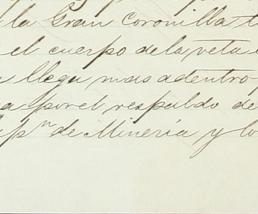 la Gran Coronilla
el cuerpo de la veta
llegu mas adentro
por el respaldo de
de Mineria y lo